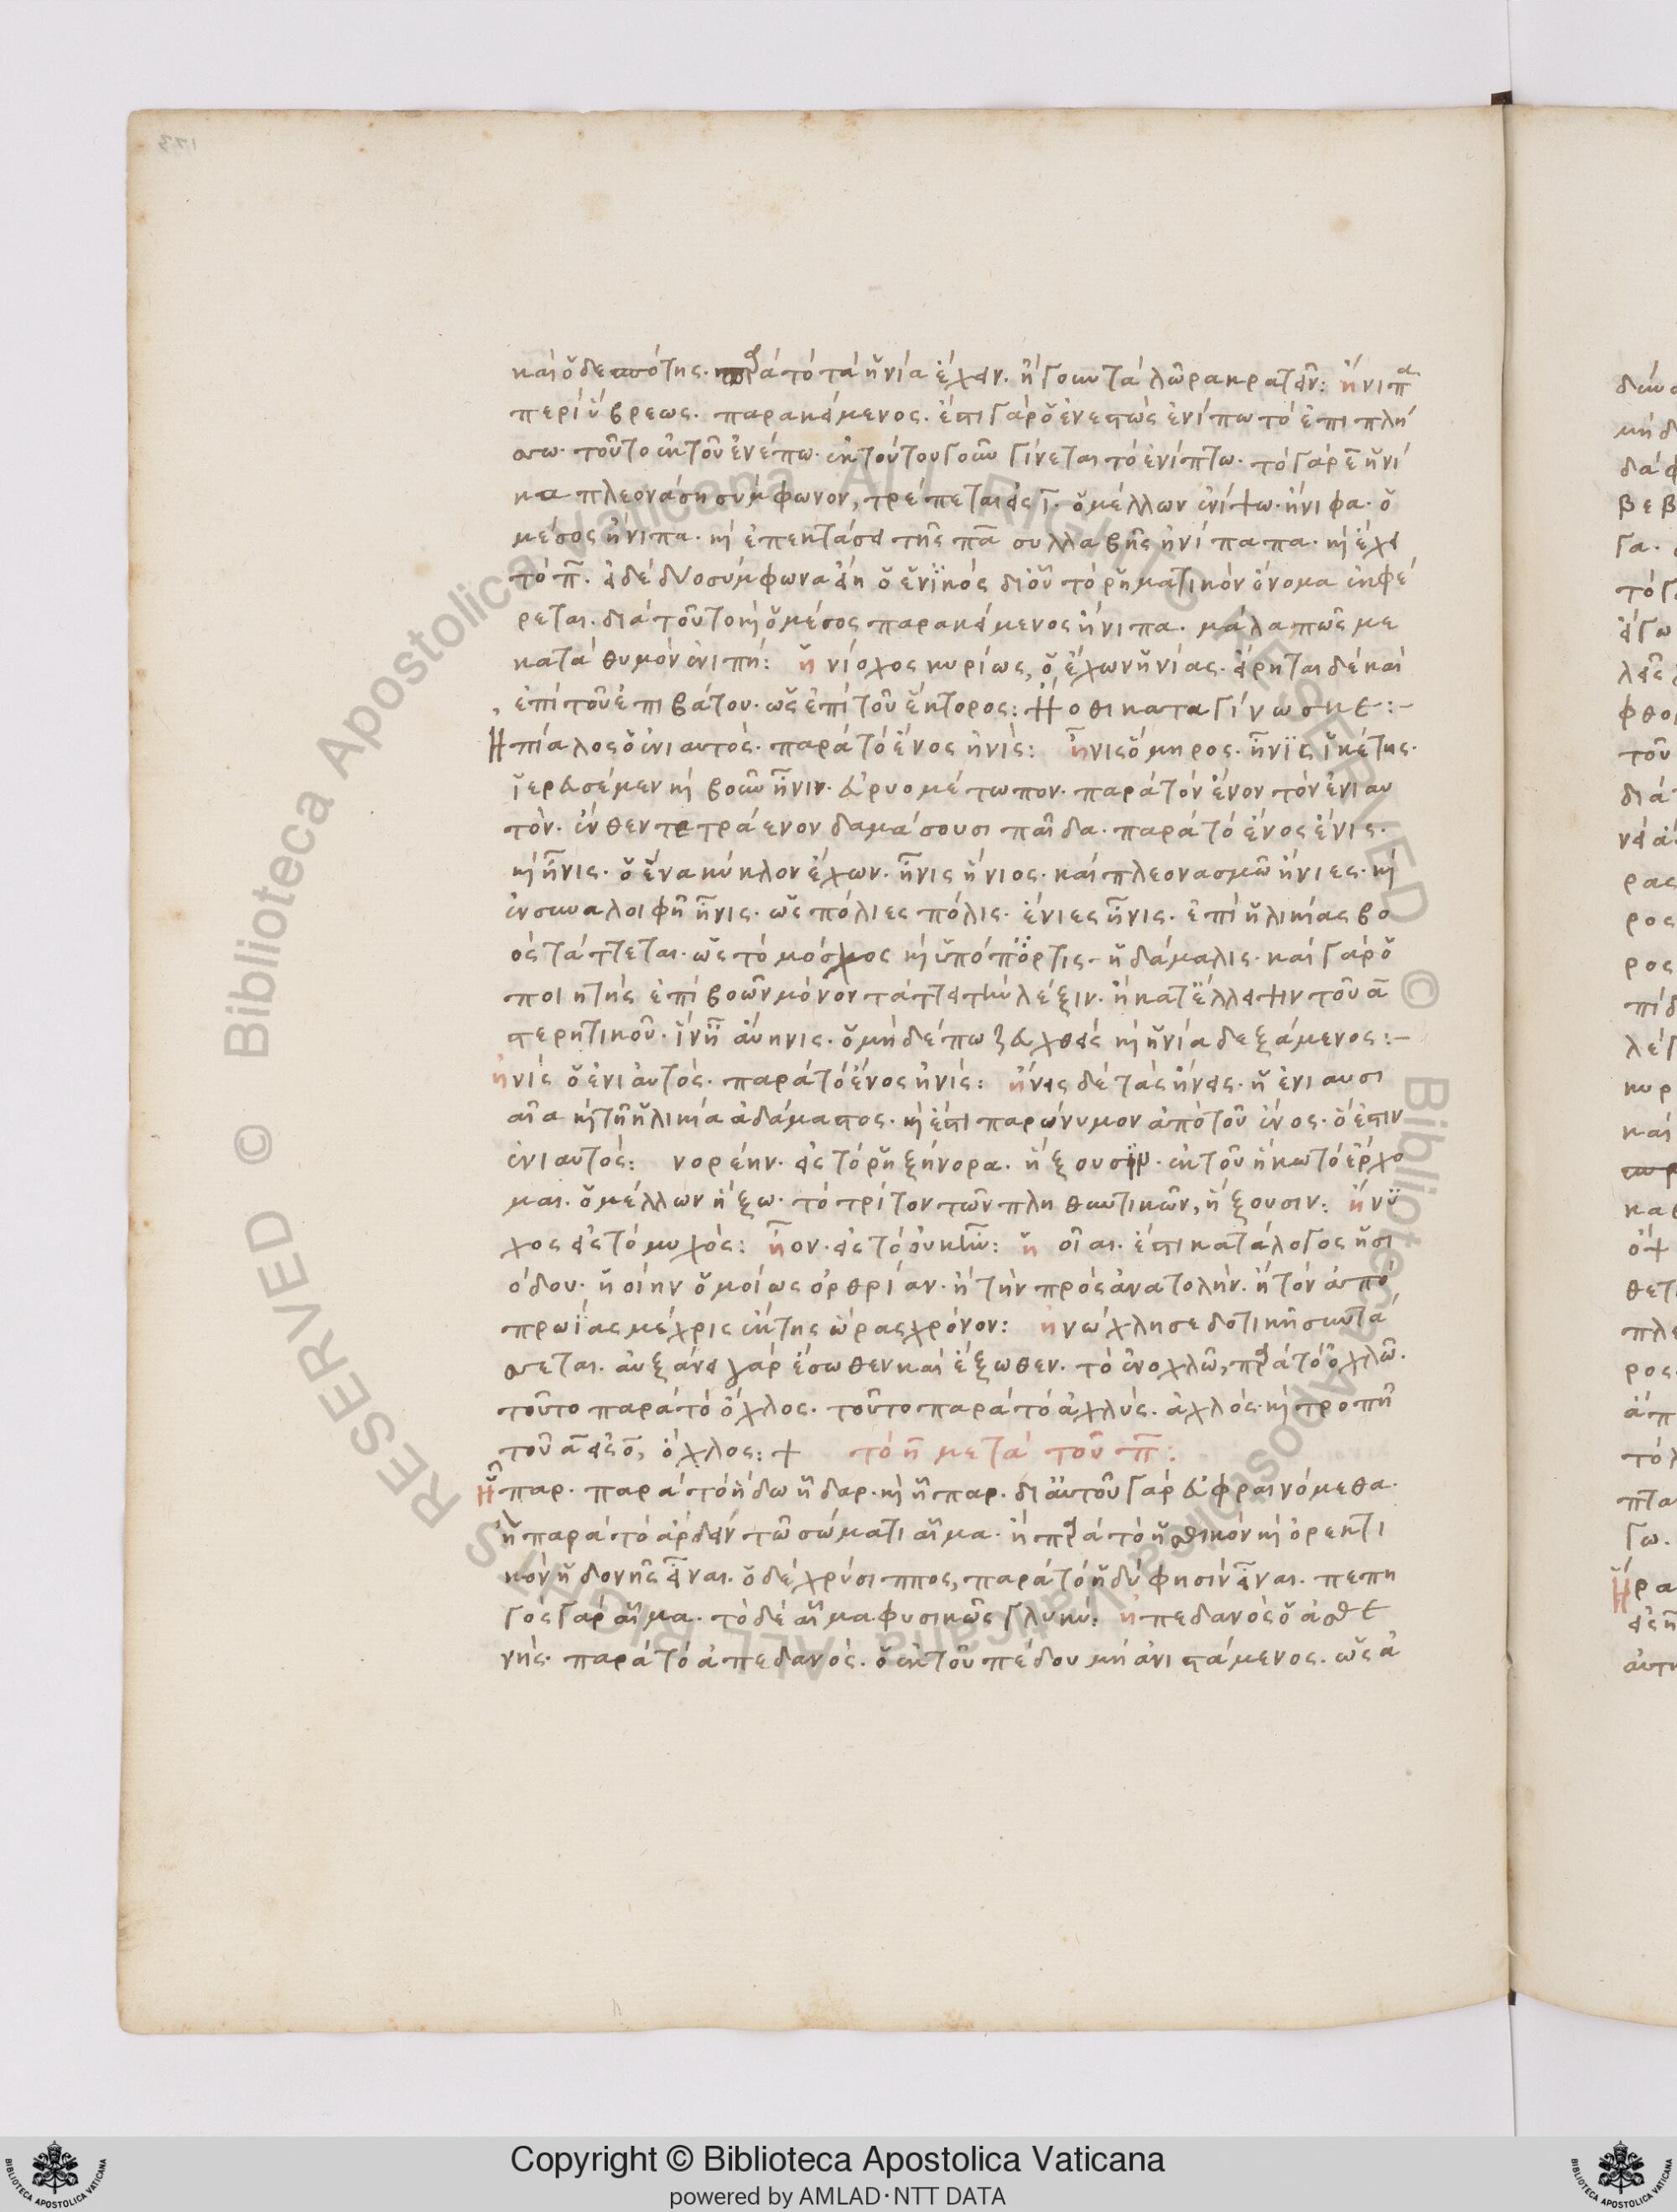 καὶ ὁ δεσπότης. παρὰ τὸ τὰ ἡνία ἔχειν. ἤγουν τὰ λῶρα κρατεῖν: ἤνιπα
περὶ ὕβρεως. παρακείμενος. ἔστι γὰρ ὁ ἐνεστὼς ἐνίπω τὸ ἐπιπλή
σσω. τοῦτο ἐκ τοῦ ἐνέπω. ἐκ τούτου γοῦν γίνεται τὸ ἐνίπτω. τὸ γὰρ ε̄ ἡνί
κα πλεονάση σύμφωνον, τρέπεται εἰς ῑ. ὁ μέλλων ἐνίψω. ἤνιφα. ὁ
μέσος ἤνιπα. κὶ ἐπεκτάσει τῆς πᾱ συλλαβῆς ἠνίπαπα. κὶ ἔχει
τὸ π̄. εἰ δὲ δύο σύμφωνα εἴη ὁ ἑνϊκὸς δι οὗ τὸ ῥηματικὸν ὄνομα ἐκφέ
ρεται. διὰ τοῦτο κὶ ὁ μέσος παρακείμενος ἤνιπα. μάλα πῶς με
κατὰ θυμὸν ἐνιπή: ἡνίοχος κυρίως, ὁ ἔχων ἡνίας. εἴρηται δὲ καὶ
ἐπὶ τοῦ ἐπιβάτου. ὡς ἐπὶ τοῦ ἕκτορος: Ἤοθι καταγίνωσκε:-
Ηπίαλος ὁ ἐνιαυτός. παρὰ τὸ ἔνος ἠνίς: ἦνις ὅμηρος. ἦνϊς ἱκέτης.
ἱερευσέμεν κὶ βοῦν ἦνιν. εὐρυομέτωπον. παρὰ τὸν ἔνον τὸν ἐνιαυ
τόν. ἔνθεν τετράενον δαμάσουσι παῖδα. παρὰ τὸ ἔνος ἔνις.
κὶ ἦνις. ὁ ἕνα κύκλον ἔχων. ἦνις ἤνιος. καὶ πλεονασμῶ ἤνιες. κὶ
ἐν συναλοιφῆ ἦνις. ὡς πόλιες πόλις. ἔνιες ἦνις. ἐπὶ ἡλικίας βο
ὸς τάττεται. ὡς τὸ μόσχος κὶ ὑπόπορτις. ἡ δάμαλις. καὶ γὰρ ὁ
ποιητὴς ἐπὶ βοῶν μόνον τάττει τὴν λέξιν. ἢ κατ ἔλλειψιν τοῦ ᾱ
στερητικοῦ. ἵν ἦ ἀύηνις. ὁ μηδέπω ζευχθεὶς κὶ ἡνία δεξάμενος:-
ἠνίς ὁ ἐνιαυτός. παρὰ τὸ ἔνος ἠνίς: ἤνεις δὲ τὰς ἤνεις. ἡ ἐνιαυσι
αῖα κὶ τῆ ἡλικία ἀδάμαστος. κὶ ἔστι παρώνυμον ἀπὸ τοῦ ἔνος. ὅ ἐστιν
ἐνιαυτός: νορέην. εἰς τὸ ῥηξήνορα. ἥξουσϊν. ἐκ τοῦ ἥκω τὸ ἔρχο
μαι. ὁ μέλλων ἥξω. τὸ τρίτον τῶν πληθυντικῶν, ἥξουσιν: ἤνϋ
χος εἰς τὸ μυχός: ἦον. εἰς τὸ οὐκῶν: ἢ οἷαι. ἔστι κατάλογος ἡσι
όδου. ἠοίην ὁμοίως ὀρθρίαν. ἢ τὴν πρὸς ἀνατολήν. ἢ τὸν ἀπὸ
πρωΐας μέχρις ἕκτης ὥρας χρόνον: ἠνώχλησε δοτικῆ συντά
σσεται. αὐξάνει γὰρ ἔσωθεν καὶ ἔξωθεν. τὸ ἐνοχλῶ, παρὰ τὸ ὀχλῶ.
τοῦτο παρὰ τὸ ὄχλος. τοῦτο παρὰ τὸ ἀχλύς. ἀχλός. κὶ τροπῆ
τοῦ ᾱ εἰς ο̄, ὄχλος: + τὸ η̄ μετὰ τοῦ π̄:
Ἧπαρ. παρὰ τὸ ἥδω ἧδαρ. κὶ ἧπαρ. δι αὐτοῦ γὰρ εὐφραινόμεθα.
ἢ παρὰ τὸ ἄρδειν τῶ σώματι αἷμα. ἢ παρὰ τὸ ἡσθικὸν κὶ ὀρεκτι
κὸν ἡδονῆς εἶναι. ὁ δὲ χρύσιππος, παρὰ τὸ ἡδύ φησιν εἶναι. πεπη
γὸς γὰρ αἷμα. τὸ δὲ αἷμα φυσικῶς γλυκύ: ἠπεδανὸς ὁ ἀσθε
νής. παρὰ τὸ ἀπεδανός. ὁ ἐκ τοῦ πέδου μὴ ἀνιστάμενος. ὡς ἀ
Copyright © Biblioteca Apostolica Vaticana
powered by AMLAD·NTT DATA